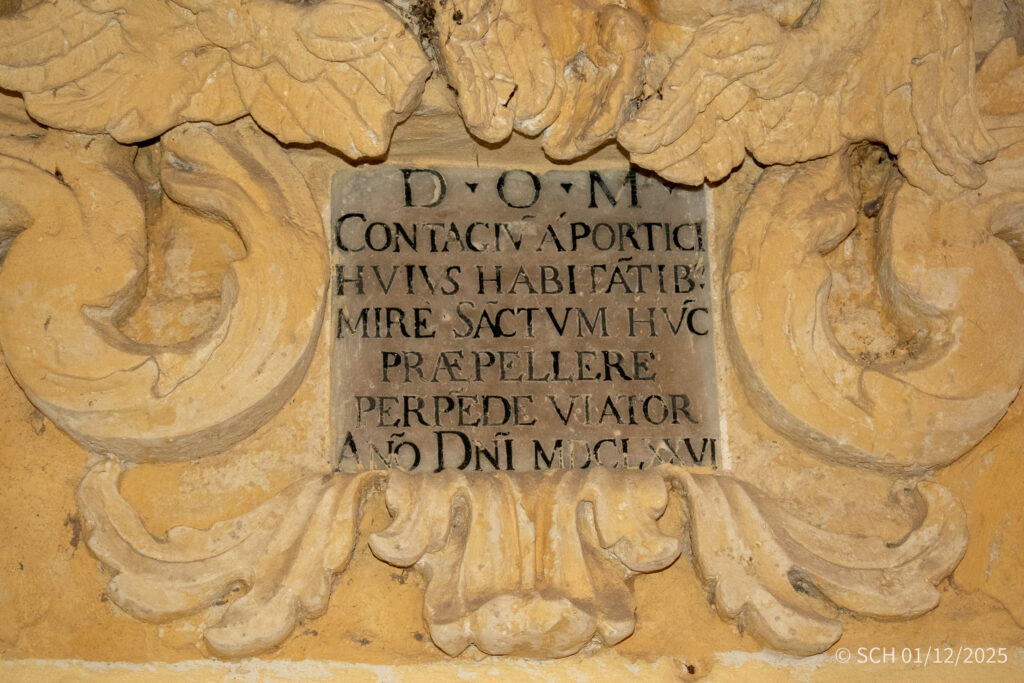 D · O · M ·
CONTAGIṼ Á PORTICI
HVIVS HABITÃTIB:
MIRE SÃCTVM HṼC
PRÆPELLERE
PERPẼDE VIATOR
AÑO DÑI MDCLXXVI
© SCH 01/12/2025